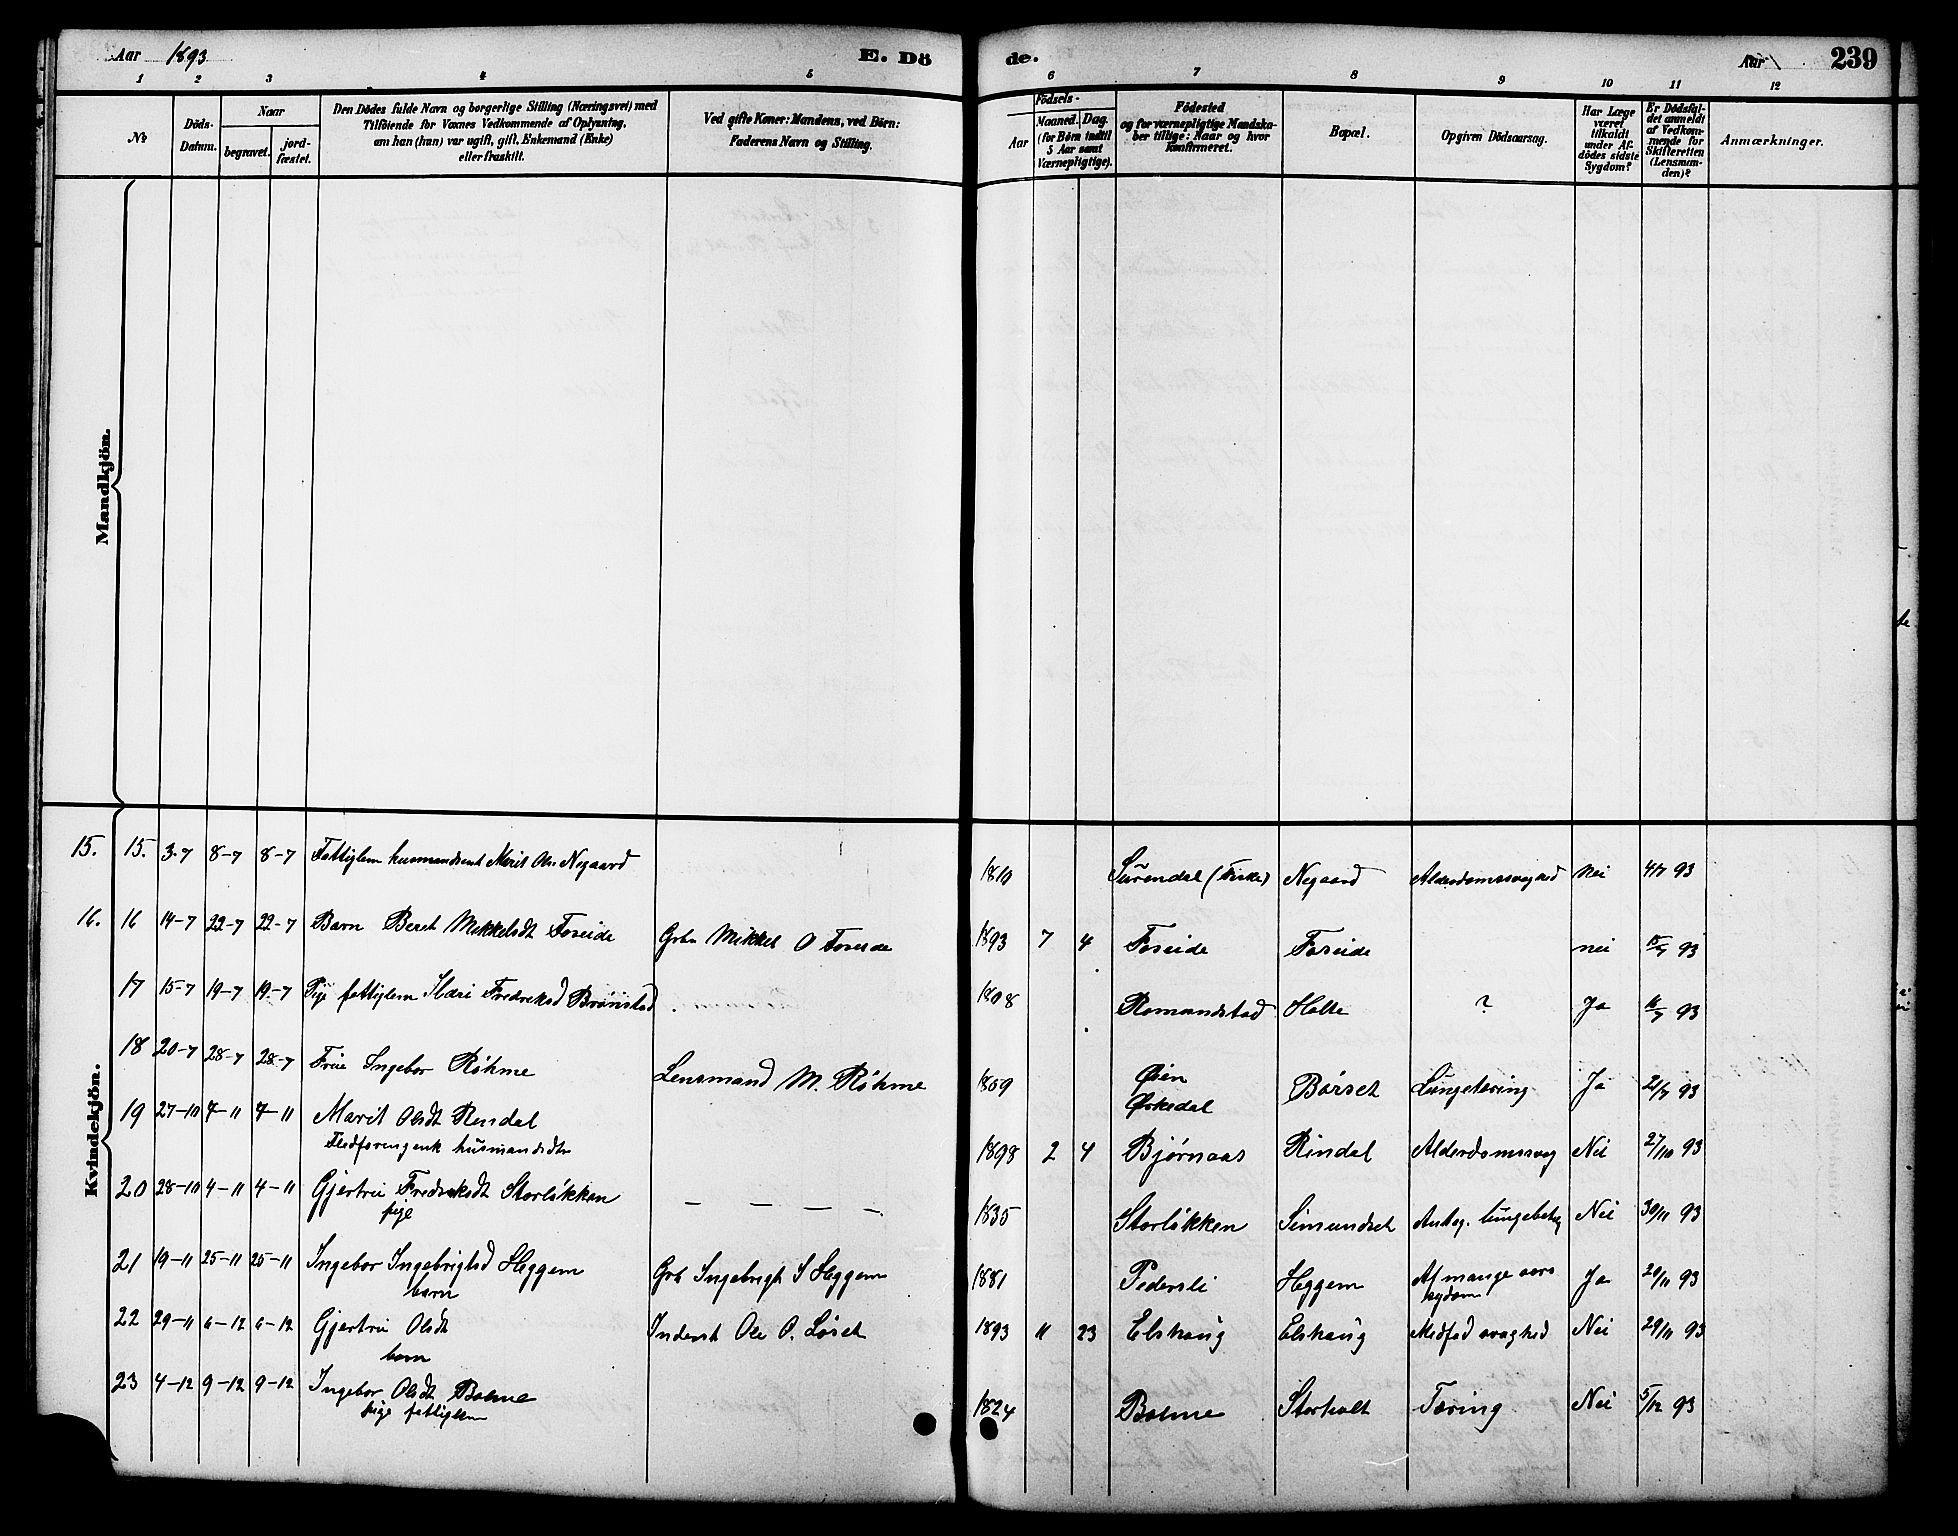 Aar 1893
E. Dö
de.
Aar
239
1 2 3 4 5 6 7 8 9 10 11 12
№
Döds-Datum.
Naar
begravet.
jord-fæstet.
Den Dödes fulde Navn og borgerlige Stilling (Næringsvei) med
Tilföiende for Voxnes Vedkommende af Oplysning,
om han (hun) var ugift, gift, Enkemand (Enke)
eller fraskilt.
Ved gifte Koner: Mandens, ved Börn:
Faderens Navn og Stilling.
Födsels-
Aar
Maaned. Dag.
(for Börn indtil
5 Aar samt
Værnepligtige).
Födested
og for værnepligtige Mandska-
ber tillige: Naar og hvor
konfirmeret.
Bopæl.
Opgiven Dödsaarsag.
Har Læge
været
tilkaldt
under Af-
dödes sidste
Sygdom?
Er Dödsfal-
det anmeldt
af Vedkom-
mende for
Skifteretten
(Lensman-
den)?
Anmærkninger.
Mandkjön.
Kvindekjön.
15. 15. 3-7 8-7 8-7 Fattiglem Marit Ols. Negaard 1810 Surendal Negaard nei 4/7 93
16. 16 14-7 22-7 22-7 Barn Beret Mikkelsdt Foseide Gbr Mikkel O Foseide 1893 7 4 Foseide Foseide nei 15/7 93
17 15-7 19-7 19-7 Pige fattiglem Fredreksd Brønstad 1808 Romundstad Holte ? Ja 16/7 93
18 20-7 28-7 28-7 Frue Ingebor Røhme Lensmand M. Røhme 1809 Øien Ørkedal Børset Lungetæring Ja 21/7 93
19 27-10 4-11 4-11 Marit Olsdt Rindal
Flødføringenk husmandsdtr 1898 2 4 Bjørnaas Rindal Alderdomssvag Nei 27/10 93
20 28-10 4-11 4-11 Gjertru Fredreksdt Storløkken
pige — — — — 1835 Storløkken Simundset Nei 30/11 93
21 19-11 25-11 25-11 Ingebor Ingebrigtsd Heggem
barn Gbr Ingebrigt S Heggem 1881 Pedersli Heggem Af mange aars
sygdom Ja 20/11 93
22 29-11 6-12 6-12 Gjertru Olsdt
barn Inderst Ole O. Løset 1893 11 23 Elshaug Elshaug Medfød svaghed Nei 29/11 93
23 4-12 9-12 9-12 Ingebor Olsdt Bolme
pige fattiglem 1824 Bolme Storholt Tæring Nei 5/12 93